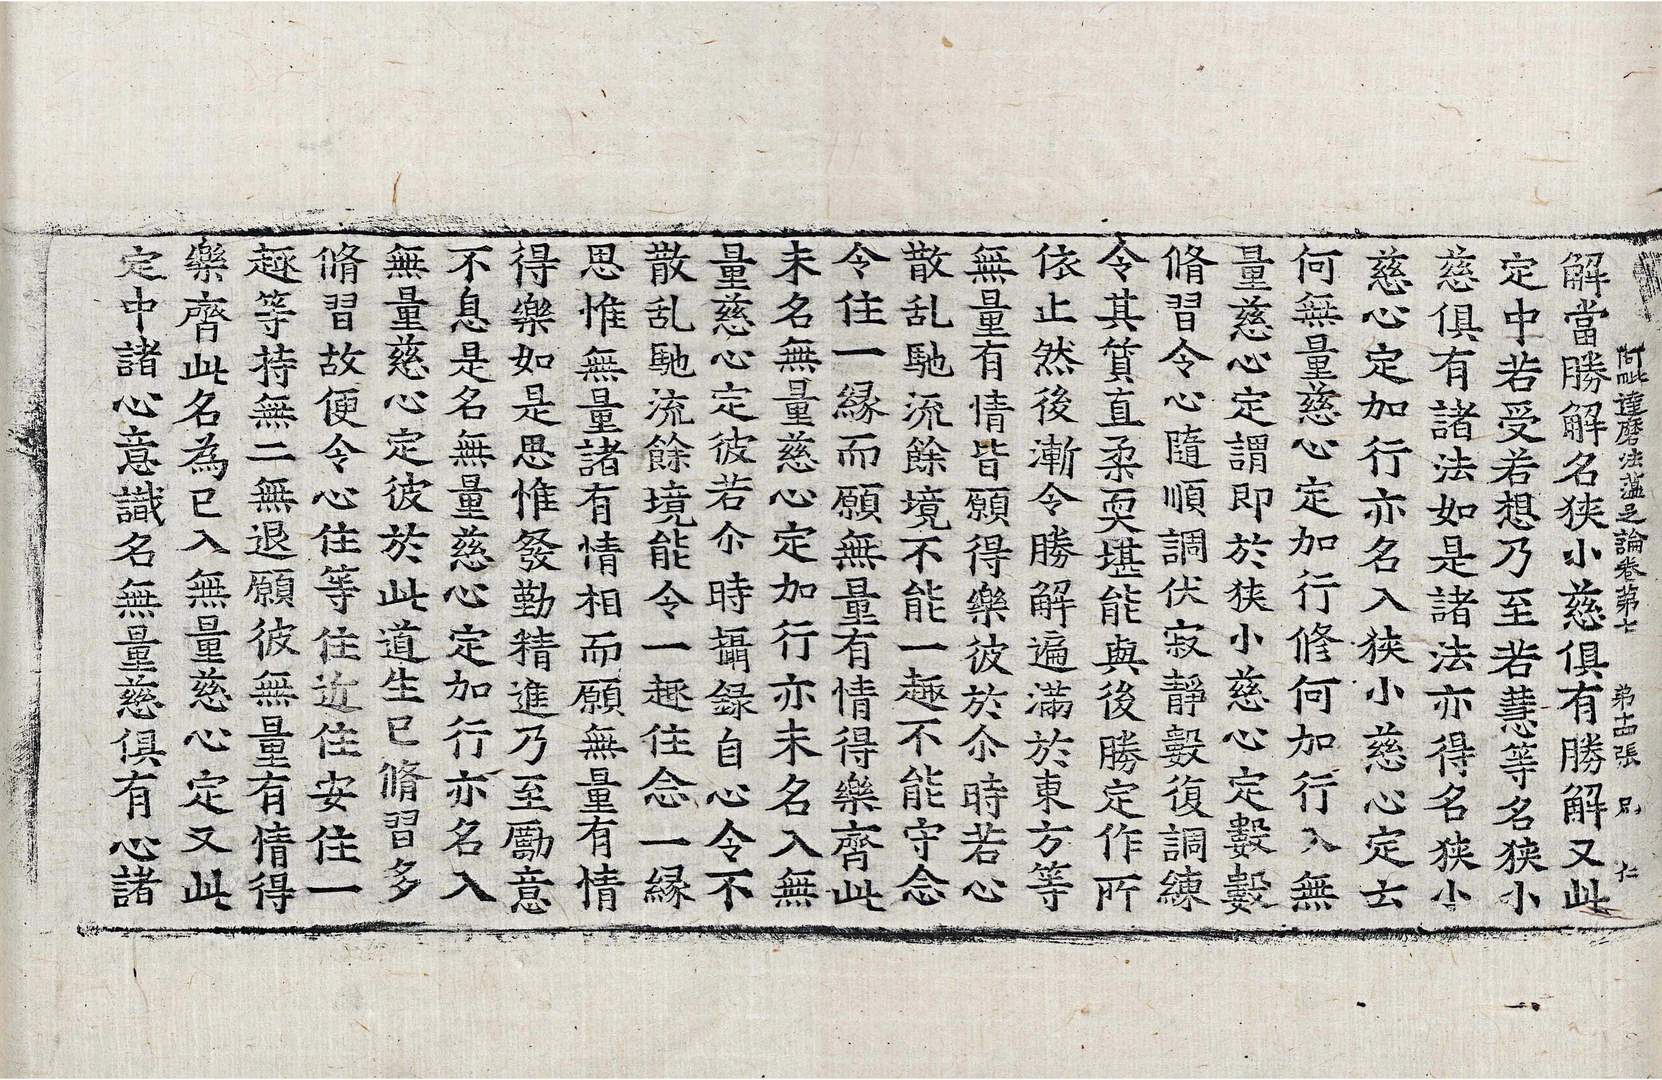 阿毗達磨法蕰足論卷第七　第十四張　𠛰　仁
解當勝解名狹小慈俱有勝解又此
定中若受若想乃至若慧等名狹小
慈俱有諸法如是諸法亦得名狹小
慈心定加行亦名入狹小慈心定云
何無量慈心定加行修何加行入無
量慈心定謂即於狹小慈心定數數
脩習令心隨順調伏寂靜數復調練
令其質直柔耎堪能與後勝定作所
依止然後漸令勝解遍滿於東方等
無量有情皆願得樂彼於尒時若心
散乱馳流餘境不能一趣不能守念
令住一緣而願無量有情得樂齊此
未名無量慈心定加行亦未名入無
量慈心定彼若尒時攝錄自心令不
散乱馳流餘境能令一趣住念一緣
思惟無量諸有情相而願無量有情
得樂如是思惟發勤精進乃至勵意
不息是名無量慈心定加行亦名入
無量慈心定彼於此道生已脩習多
脩習故便令心住等住近住安住一
趣等持無二無退願彼無量有情得
樂齊此名為已入無量慈心定又此
定中諸心意識名無量慈俱有心諸